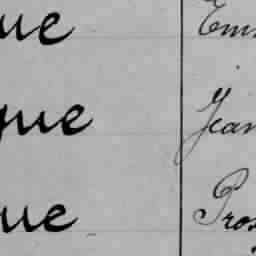 ue Em
que Jean
ue Pros